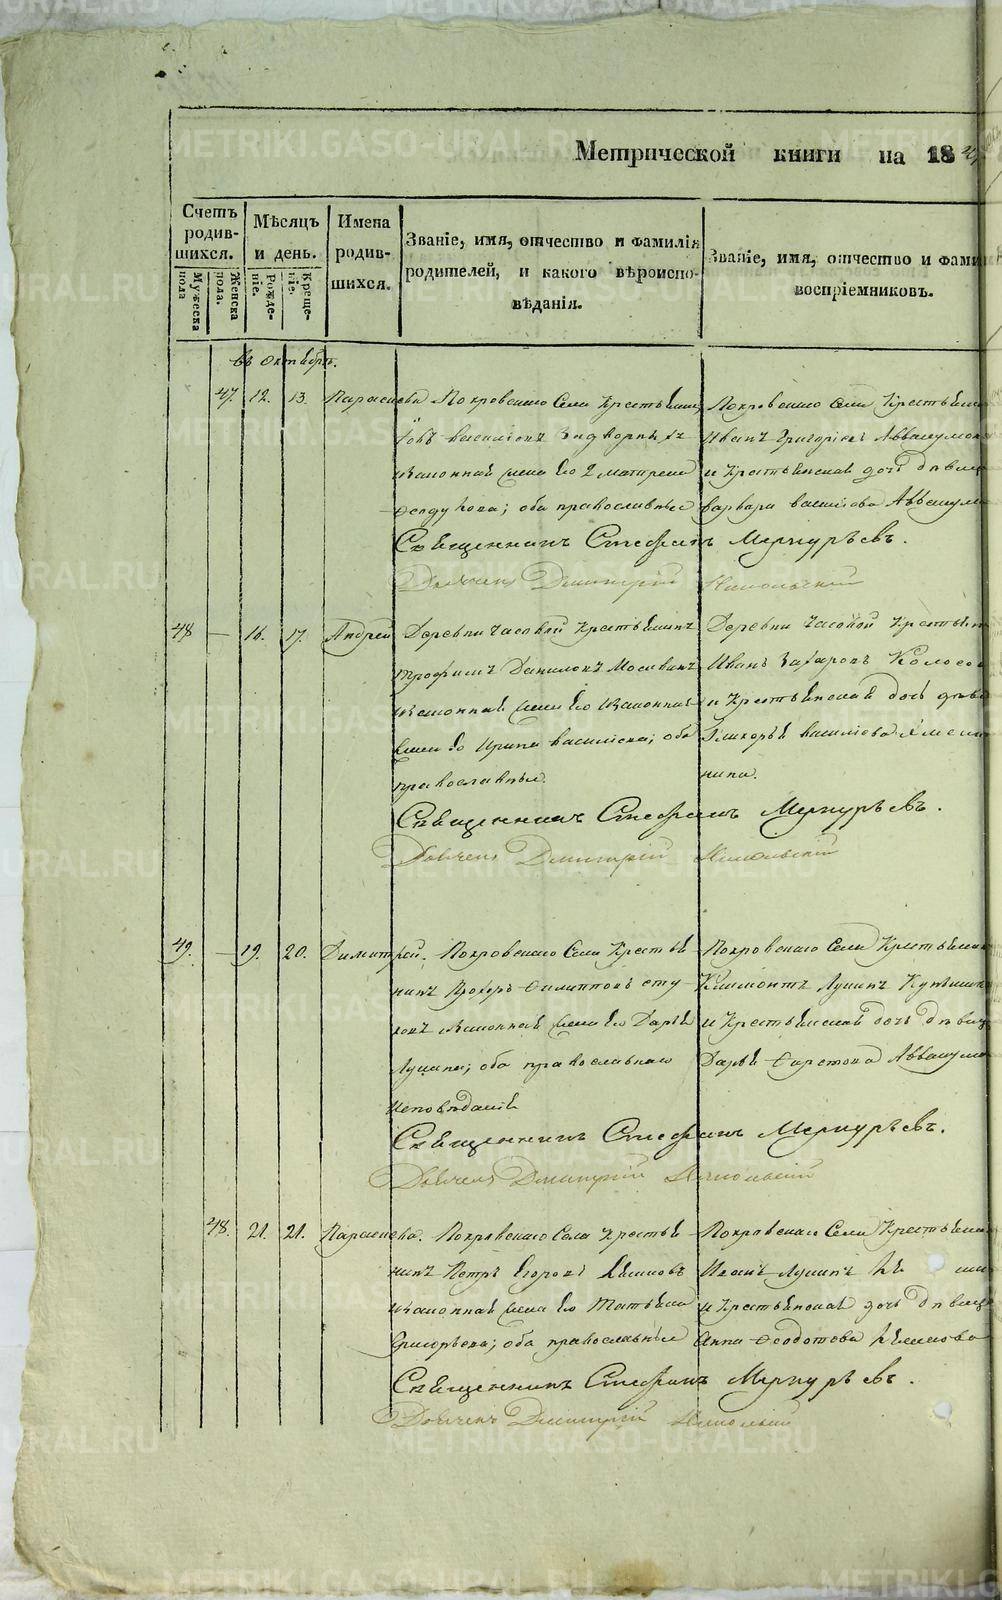 Метрической книги на 18
Счетъ родив-шихся.
Мужеска пола
Женска пола.
Мѣсяцъ и день.
Рожде-ніе.
Креще-ніе.
Имена родив-шихся.
Званіе, имя, отчество и фамилія
родителей, и какого вѣроиспо-
вѣданія.
Званіе, имя, отчество и фами
воспріемниковъ.
въ октябрѣ.
47. 12. 13. Параскева Покровскаго Села Крестьянинъ
Іовъ Василіевъ
законная жена его Матрена
Ѳеодулова; оба православные
Покровскаго Села Крестьянинъ
Иванъ Григоріевъ Аввакумовъ
и Крестьянская дочь дѣвица
Варвара Василіева Аввакумо
Священникъ Стефанъ Меркурьевъ.
Дьячекъ Димитрій Никольскій
48 — 16. 17. Андрей Деревни Часовой Крестьянинъ
Трофимъ Даниловъ Москвинъ
законная жена его законная
жена его Ирина Василіева; оба
православные.
Деревни Часовой Крестьян
Иванъ Захаровъ Колосов
и Крестьянская дочь дѣви
Гликерья Василіева
нина.
Священникъ Стефанъ Меркурьевъ.
Дьячекъ Димитрій Никольскій
49. — 19. 20. Димитрій. Покровскаго Села Крестья
нинъ Прохоръ Филипповъ
законная жена его Дарья
Лукина; оба православнаго
исповѣданія
Покровскаго Села Крестьянин
Климонтъ Лукинъ
и Крестьянская дочь дѣвица
Дарья Аввакумо
Священникъ Стефанъ Меркурьевъ.
Дьячекъ Димитрій Никольскій
48. 21. 21. Параскева. Покровскаго Села Крестья
нинъ Петръ Егоровъ
законная жена его Татьяна
Григорьева; оба православные
Покровскаго Села Крестьянин
Иванъ Лукинъ
и Крестьянская дочь дѣвица
Анна Ѳеодотова
Священникъ Стефанъ Меркурьевъ.
Дьячекъ Димитрій Никольскій
METRIKI.GASO-URAL.RU